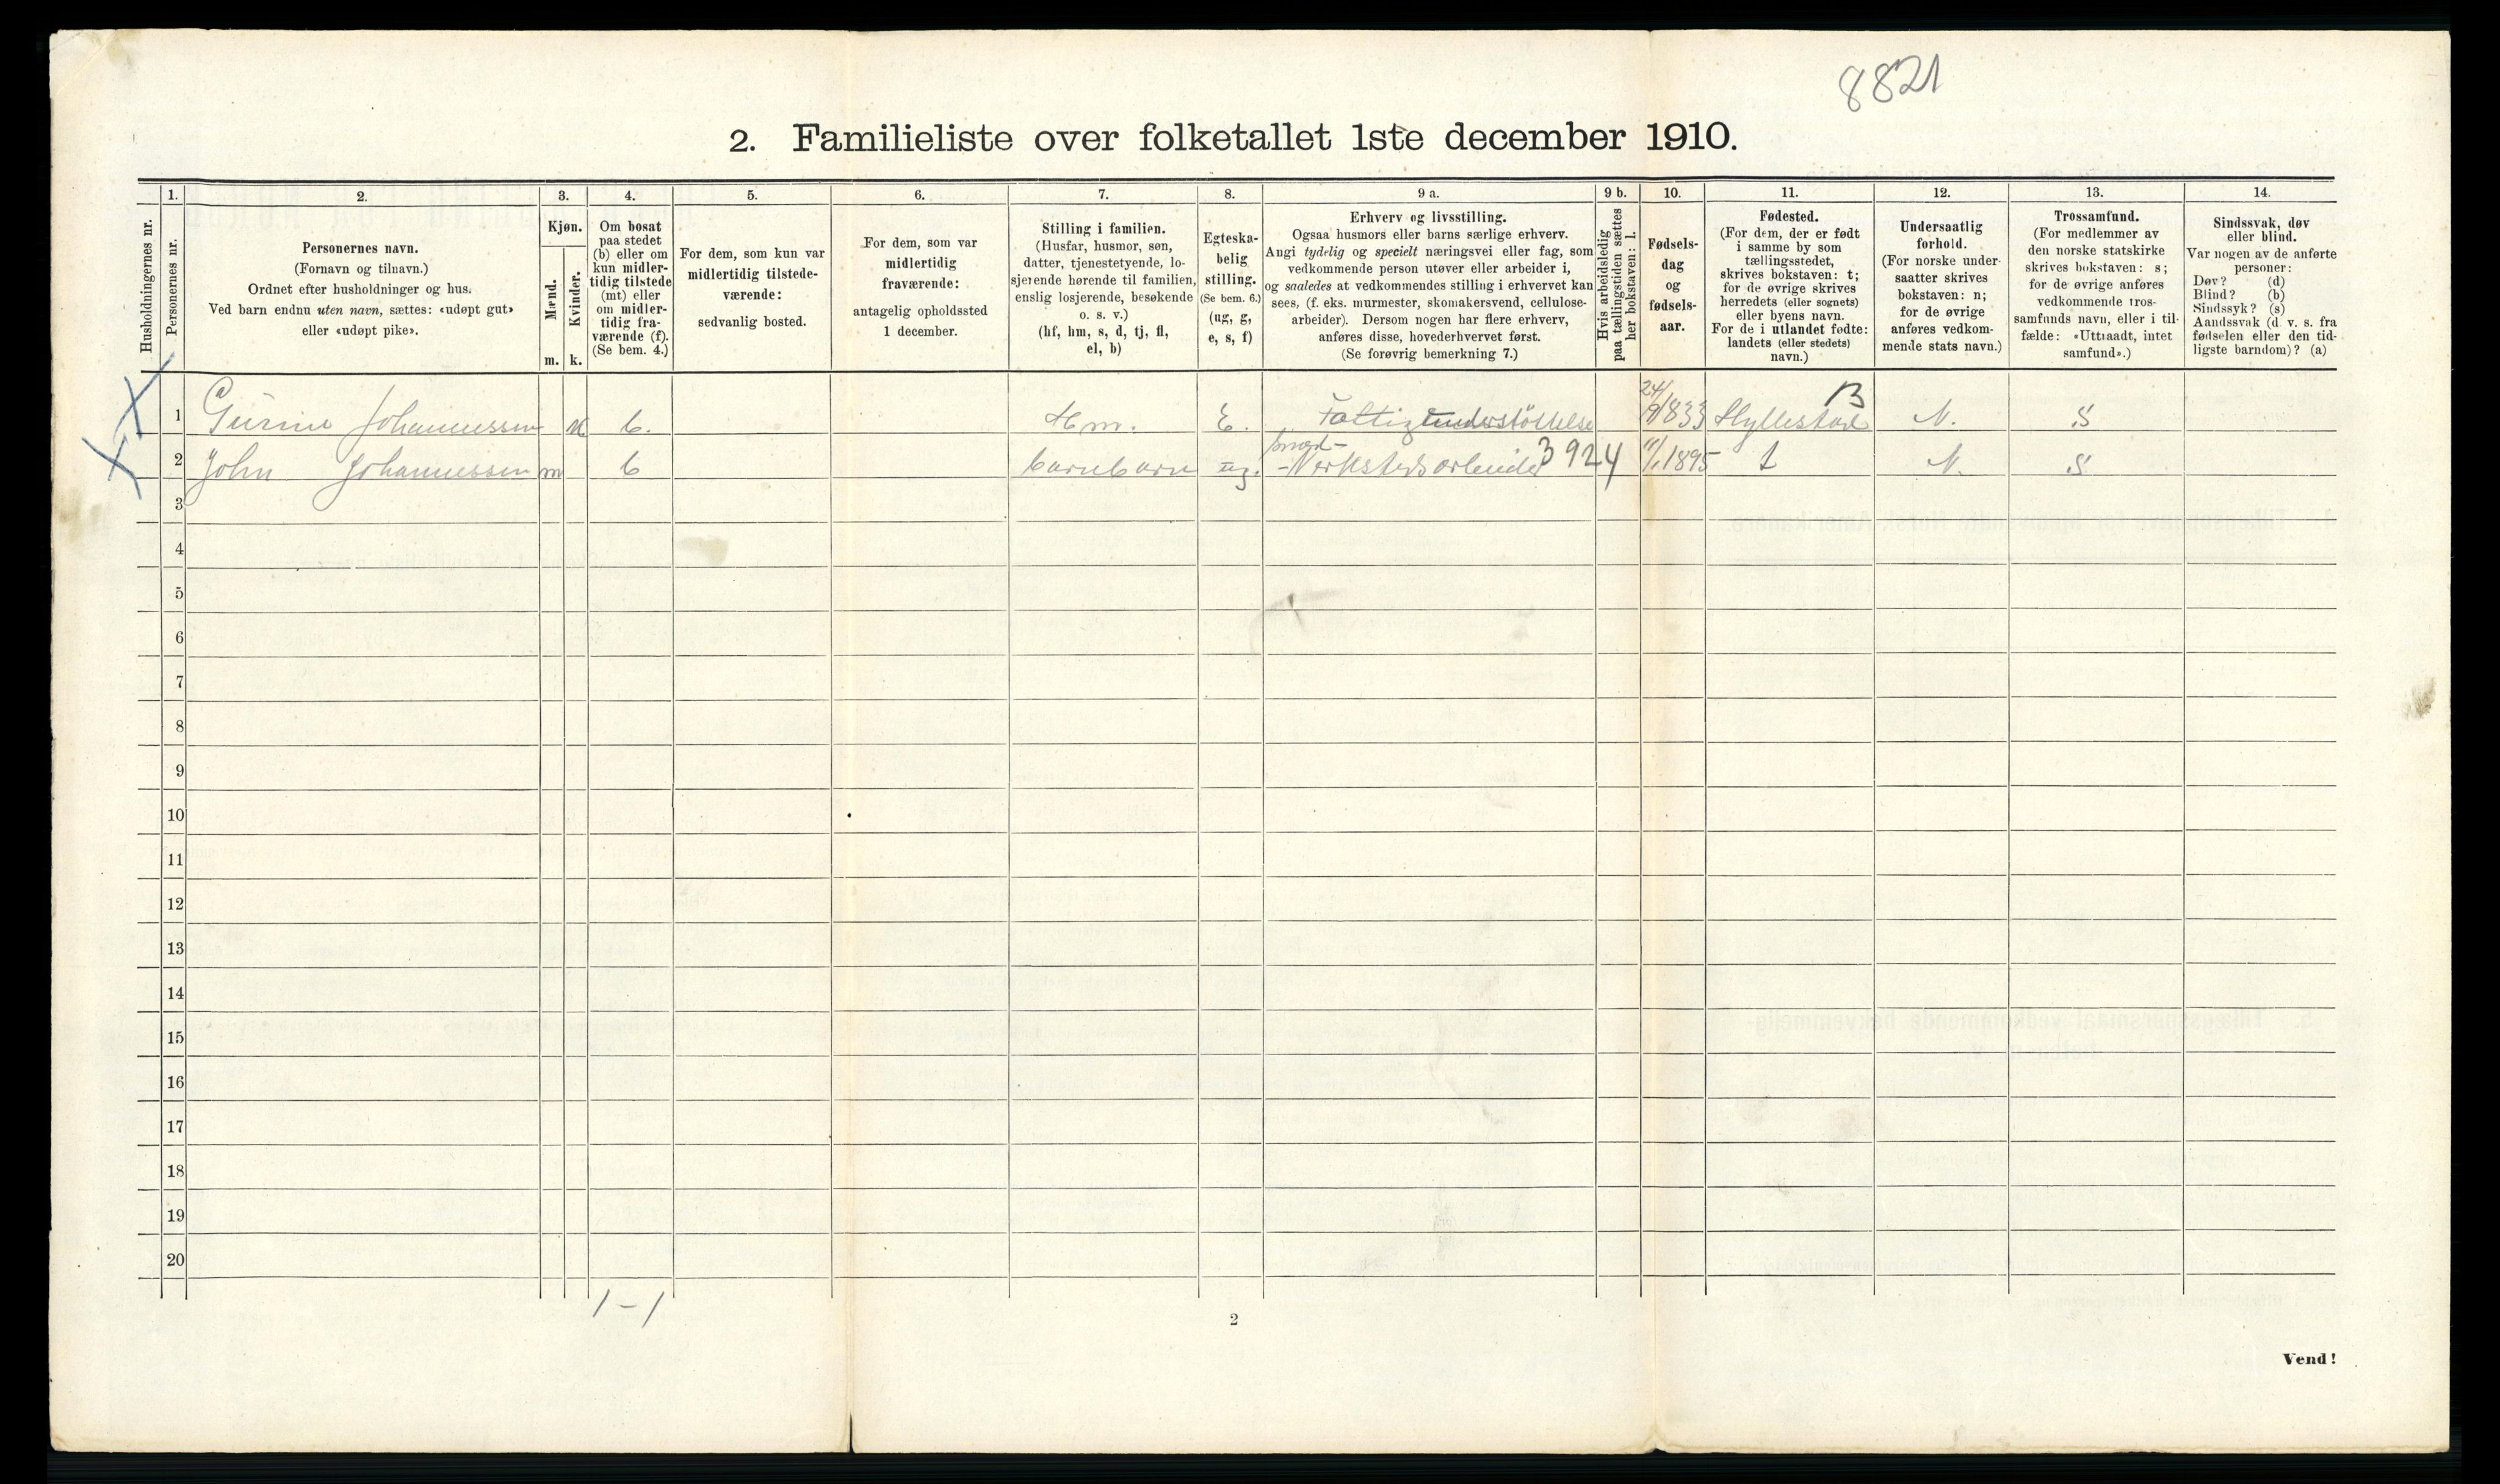 8821
2. Familieliste over folketallet 1ste december 1910.
Husholdningernes nr.
1.
Personernes nr.
2.
Personernes navn.
(Fornavn og tilnavn.)
Ordnet efter husholdninger og hus.
Ved barn endnu uten navn, sættes: «udøpt gut»
eller «udøpt pike».
3.
Kjøn.
Mænd.
m.
Kvinder.
k.
4.
Om bosat
paa stedet
(b) eller om
kun midler-
tidig tilstede
(mt) eller
om midler-
tidig fra-
værende (f).
(Se bem. 4.)
5.
For dem, som kun var
midlertidig tilstede-
værende:
sedvanlig bosted.
6.
For dem, som var
midlertidig
fraværende:
antagelig opholdssted
1 december.
7.
Stilling i familien.
(Husfar, husmor, søn,
datter, tjenestetyende, lo-
sjerende hørende til familien,
enslig losjerende, besøkende
o. s. v.)
(hf, hm, s, d, tj, fl,
el, b)
8.
Egteska-
belig
stilling.
(Se bem. 6.)
(ug, g,
e, s, f)
9 a.
Erhverv og livsstilling.
Ogsaa husmors eller barns særlige erhverv.
Angi tydelig og specielt næringsvei eller fag, som
vedkommende person utøver eller arbeider i,
og saaledes at vedkommendes stilling i erhvervet kan
sees, (f. eks. murmester, skomakersvend, cellulose-
arbeider). Dersom nogen har flere erhverv,
anføres disse, hovederhvervet først.
(Se forøvrig bemerkning 7.)
9 b.
Hvis arbeidsledig
paa tællingstiden sættes
her bokstaven: l.
10.
Fødsels-
dag
og
fødsels-
aar.
11.
Fødested.
(For dem, der er født
i samme by som
tællingsstedet,
skrives bokstaven: t;
for de øvrige skrives
herredets (eller sognets)
eller byens navn.
For de i utlandet fødte:
landets (eller stedets)
navn.)
12.
Undersaatlig
forhold.
(For norske under-
saatter skrives
bokstaven: n;
for de øvrige
anføres vedkom-
mende stats navn.)
13.
Trossamfund.
(For medlemmer av
den norske statskirke
skrives bokstaven: s;
for de øvrige anføres
vedkommende tros-
samfunds navn, eller i til-
fælde: «Uttraadt, intet
samfund».)
14.
Sindssvak, døv
eller blind.
Var nogen av de anførte
personer:
Døv? (d)
Blind? (b)
Sindssyk? (s)
Aandssvak (d. v. s. fra
fødselen eller den tid-
ligste barndom)? (a)
1 Gurine Johannessen k b. Hm. E. Fattigunderstöttelse 1833 Hyllestad B N. S
2 John Johannessen m b barnbarn ug. - Verkstedsarbeider 3924 11/1 1895 t N. S
3
4
5
6
7
8
9
10
11
12
13
14
15
16
17
18
19
20
1-1
2
Vend!